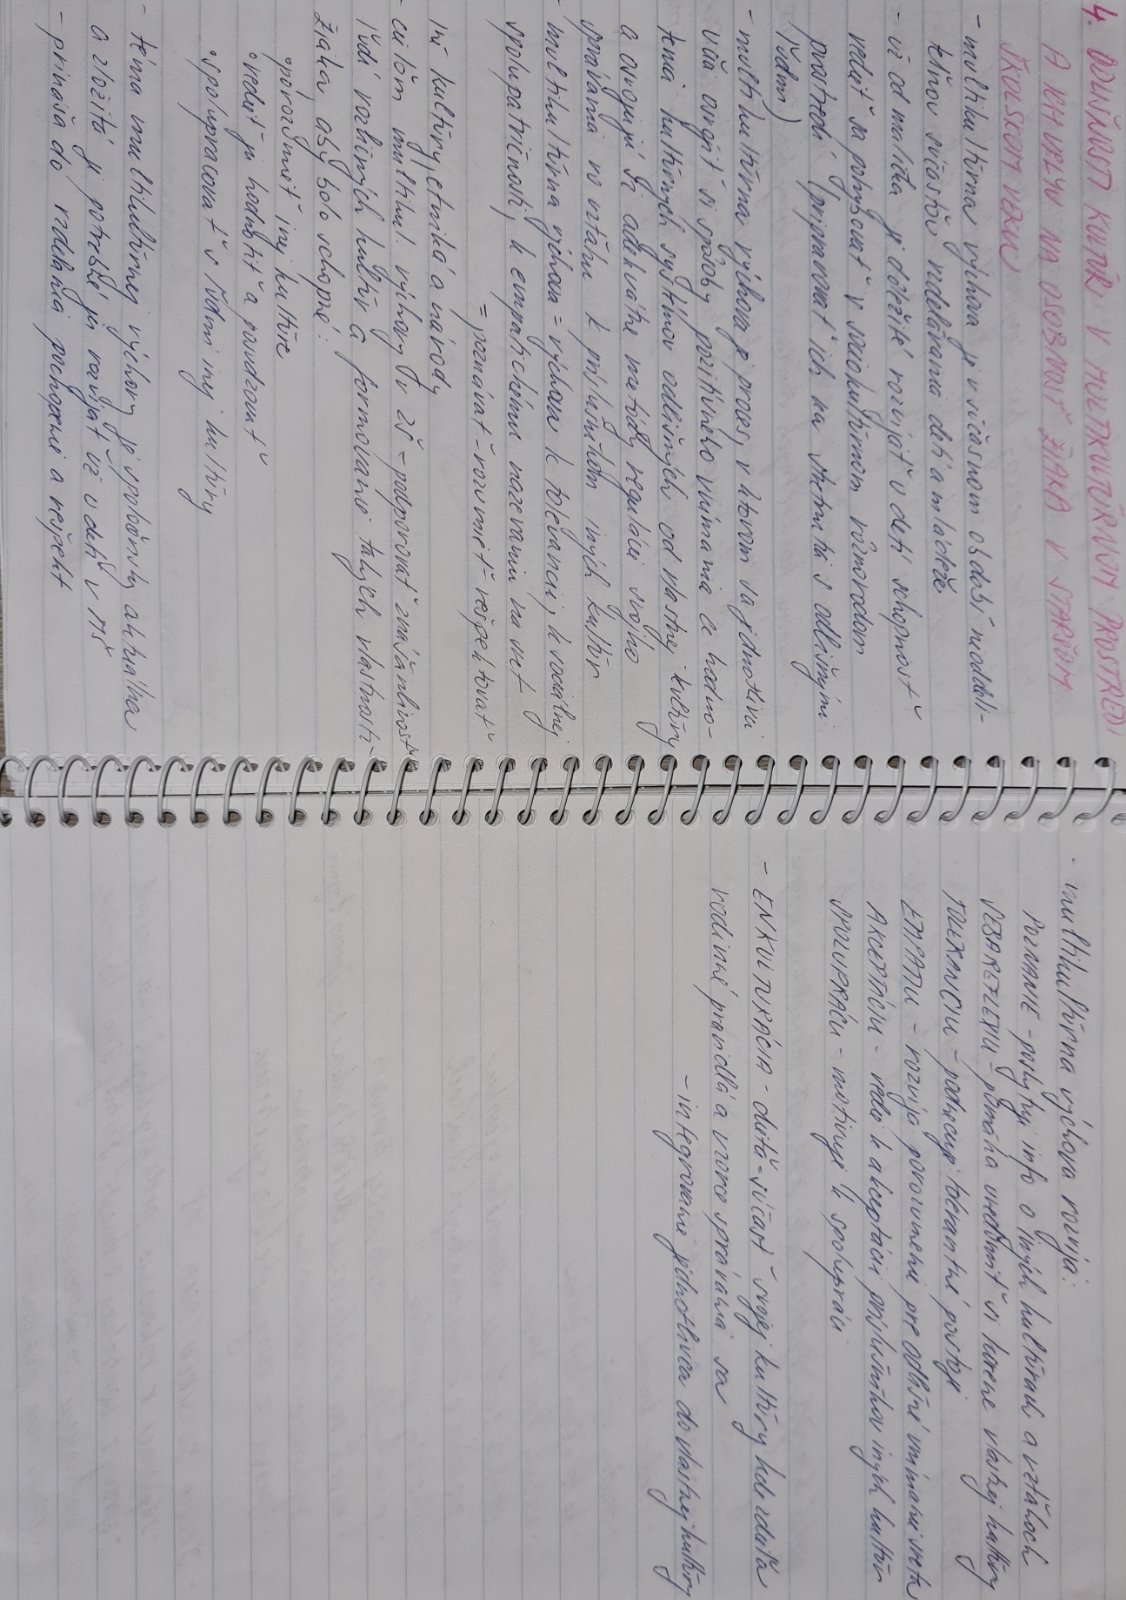 4. DOVIŇNOSŤ KULTÚR V MULTIKULTÚRNOM PROSTREDÍ
A ICH VPLYV NA OSOBNOSŤ ŽIAKA V STARŠOM
ŠKOLSKOM VEKU
- multikultúrna výchova je v súčasnom období neoddeli-
teľnou súčasťou vzdelávania detí a mládeže
- už od malička je dôležité rozvíjať v deti schopnosť
vedieť sa pohybovať v sociokultúrnom rôznorodom
prostredí (pripravovať ich na stretnutia s odlišnými
ľuďmi)
- multikultúrna výchova je proces, v ktorom sa jednotlivci
učia osvojiť si spôsoby pozitívneho vnímania a hodno-
tenia kultúrnych systémov odlišných od vlastnej kultúry
a osvojujú si adekvátne metódy regulácie svojho
správania vo vzťahu k príslušníkom iných kultúr
- multikultúrna výchova = výchova k tolerancii, k sociálnej
spolupatričnosti, k empatickému nazeraniu na svet
= poznávať - rozumieť - rešpektovať
iné kultúry, etniká a národy
- cieľom multikul. výchovy v ZŠ - podporovať znášanlivosť
ľudí rozličných kultúr a formovanie takých vlastností
žiaka, aby bolo schopné:
•porozumieť inej kultúre
•vedieť ju hodnotiť a porovnať
•spolupracovať s ľuďmi inej kultúry
- téma multikultúrnej výchovy je spoločensky aktuálna
a dôležitá je potrebné ju rozvíjať už u detí v MŠ
- prináša do vzdelania pochopenie a rešpekt
- multikultúrna výchova rozvíja:
POZNANIE - poskytuje info o iných kultúrach a vzťahoch
SEBAREFLEXIU - pomáha uvedomiť si korene vlastnej kultúry
TOLERANCIU - podnecuje tolerantné postoje
EMPATIU - rozvíja porozumenie pre odlišné vnímanie sveta
AKCEPTÁCIU - vedie k akceptácii príslušníkov iných kultúr
SPOLUPRÁCU - motivuje k spolupráci
- ENKULTURÁCIA - dieťa = súčasť svojej kultúry kde vláda
rodinné pravidlá a vzorce správania sa
- integrovanie jednotlivca do vlastnej kultúry